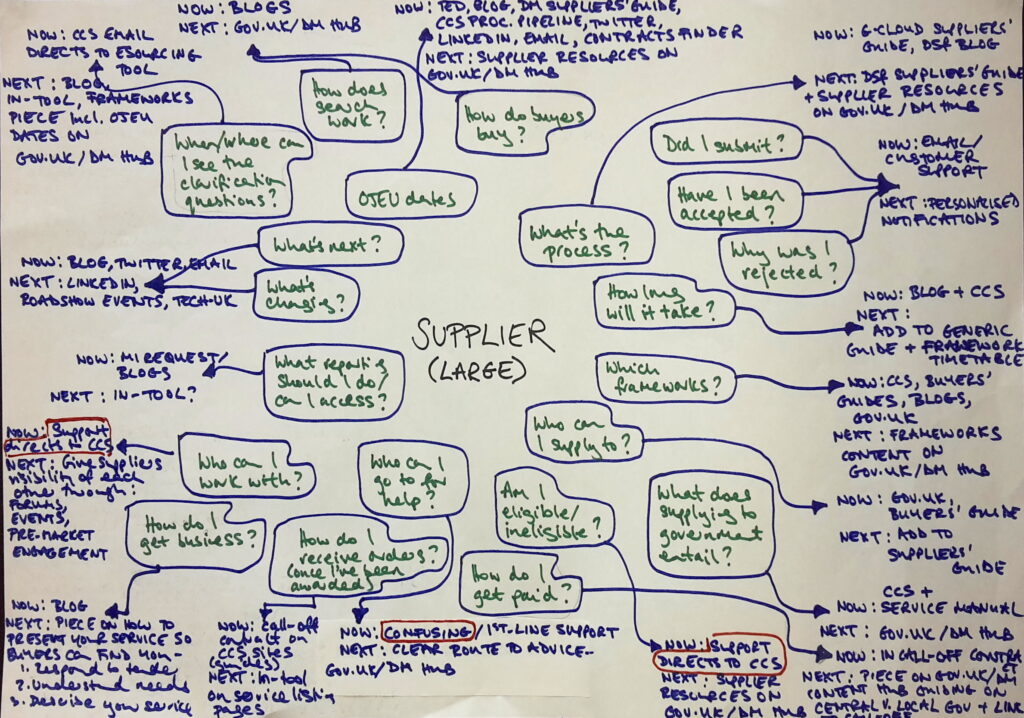 NOW: CCS EMAIL
DIRECTS TO ESOURCING
TOOL
NEXT: BLOG,
IN-TOOL, FRAMEWORKS
PIECE INCL. OJEU
DATES ON
GOV.UK/DM HUB
NOW: BLOGS
NEXT: GOV.UK/DM HUB
NOW: TED, BLOG, DM SUPPLIERS' GUIDE,
CCS PROC. PIPELINE, TWITTER,
LINKEDIN, EMAIL, CONTRACTS FINDER
NEXT: SUPPLIER RESOURCES ON
GOV.UK/DM HUB
NOW: G-CLOUD SUPPLIERS'
GUIDE, DSP BLOG
NEXT: DSP SUPPLIERS' GUIDE
+ SUPPLIER RESOURCES
ON GOV.UK/DM HUB
How does
search
work?
How do buyers
buy?
When/where can
I see the
clarification
questions?
OJEU dates
Did I submit?
Have I been
accepted?
Why was I
rejected?
NOW: EMAIL/
CUSTOMER
SUPPORT
NEXT: PERSONALISED
NOTIFICATIONS
What's the
process?
What's next?
What's
changing?
NOW: BLOG, TWITTER, EMAIL
NEXT: LINKEDIN,
ROADSHOW EVENTS, TECH-UK
How long
will it take?
NOW: BLOG + CCS
NEXT:
ADD TO GENERIC
GUIDE + FRAMEWORK
TIMETABLE
SUPPLIER
(LARGE)
NOW: MI REQUEST/
BLOGS
NEXT: IN-TOOL?
What reporting
should I do/
can I access?
Which
frameworks?
NOW: CCS, BUYERS'
GUIDES, BLOGS,
GOV.UK
NEXT: FRAMEWORKS
CONTENT ON
GOV.UK/DM HUB
NOW: Support
directs to CCS
NEXT: Give suppliers
visibility of each
other through:
FORUMS,
EVENTS,
PRE-MARKET
ENGAGEMENT
Who can I
work with?
Who can I
go to for
help?
Who can
I supply to?
Am I
eligible/
ineligible?
What does
supplying to
government
entail?
NOW: GOV.UK,
BUYERS' GUIDE
NEXT: ADD TO
SUPPLIERS'
GUIDE
How do I
get business?
How do I
receive orders?
(once I've been
awarded)
How do I
get paid?
NOW: BLOG
NEXT: PIECE ON HOW TO
PRESENT YOUR SERVICE SO
BUYERS CAN FIND YOU-
1. Respond to tender
2. Understand needs
3. Describe your service
NOW: Call-off
contract on
CCS sites
NEXT: In-tool
on service listing
pages
NOW: CONFUSING/1ST-LINE SUPPORT
NEXT: CLEAR ROUTE TO ADVICE-
GOV.UK/DM HUB
NOW: SUPPORT
DIRECTS TO CCS
NEXT: SUPPLIER
RESOURCES ON
GOV.UK/DM HUB
CCS +
NOW: SERVICE MANUAL
NEXT: GOV.UK/DM HUB
NOW: IN CALL-OFF CONTRACT
NEXT: PIECE ON GOV.UK/DM
CONTENT HUB GUIDING ON
CENTRAL V. LOCAL GOV + LINK